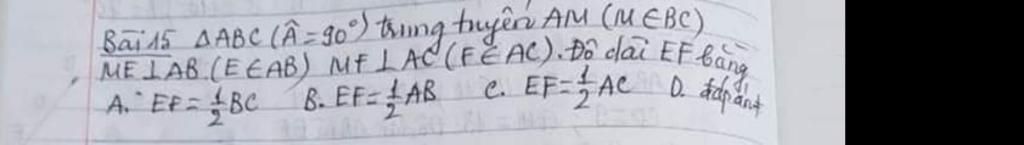 Bài 15 ΔABC (Â = 90°) trung tuyến AM (M ∈ BC)
ME ⊥ AB (E ∈ AB) MF ⊥ AC (F ∈ AC). Độ dài EF bằng
A. EF = 1/2 BC B. EF = 1/2 AB C. EF = 1/2 AC D. đáp án ≠